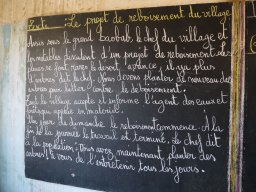 Texte : Le projet de reboisement du village
Assis sous le grand baobab, le chef du village et
les notables discutent d'un projet de reboisement. Les
pluies se font rares le désert avance, il n'y a plus
d'arbres dit le chef. Nous devons planter de nouveaux des
arbres pour lutter contre le déboisement.
Tout le village accepte et informe l'agent des eaux et
forêts qui apporte un matériel.
Un jour de dimanche le reboisement commence. À la
fin de la journée le travail est terminé. Le chef dit
à la population : Vous avez maintenant planter des
arbres, de vous de l'entretenir tous les jours.